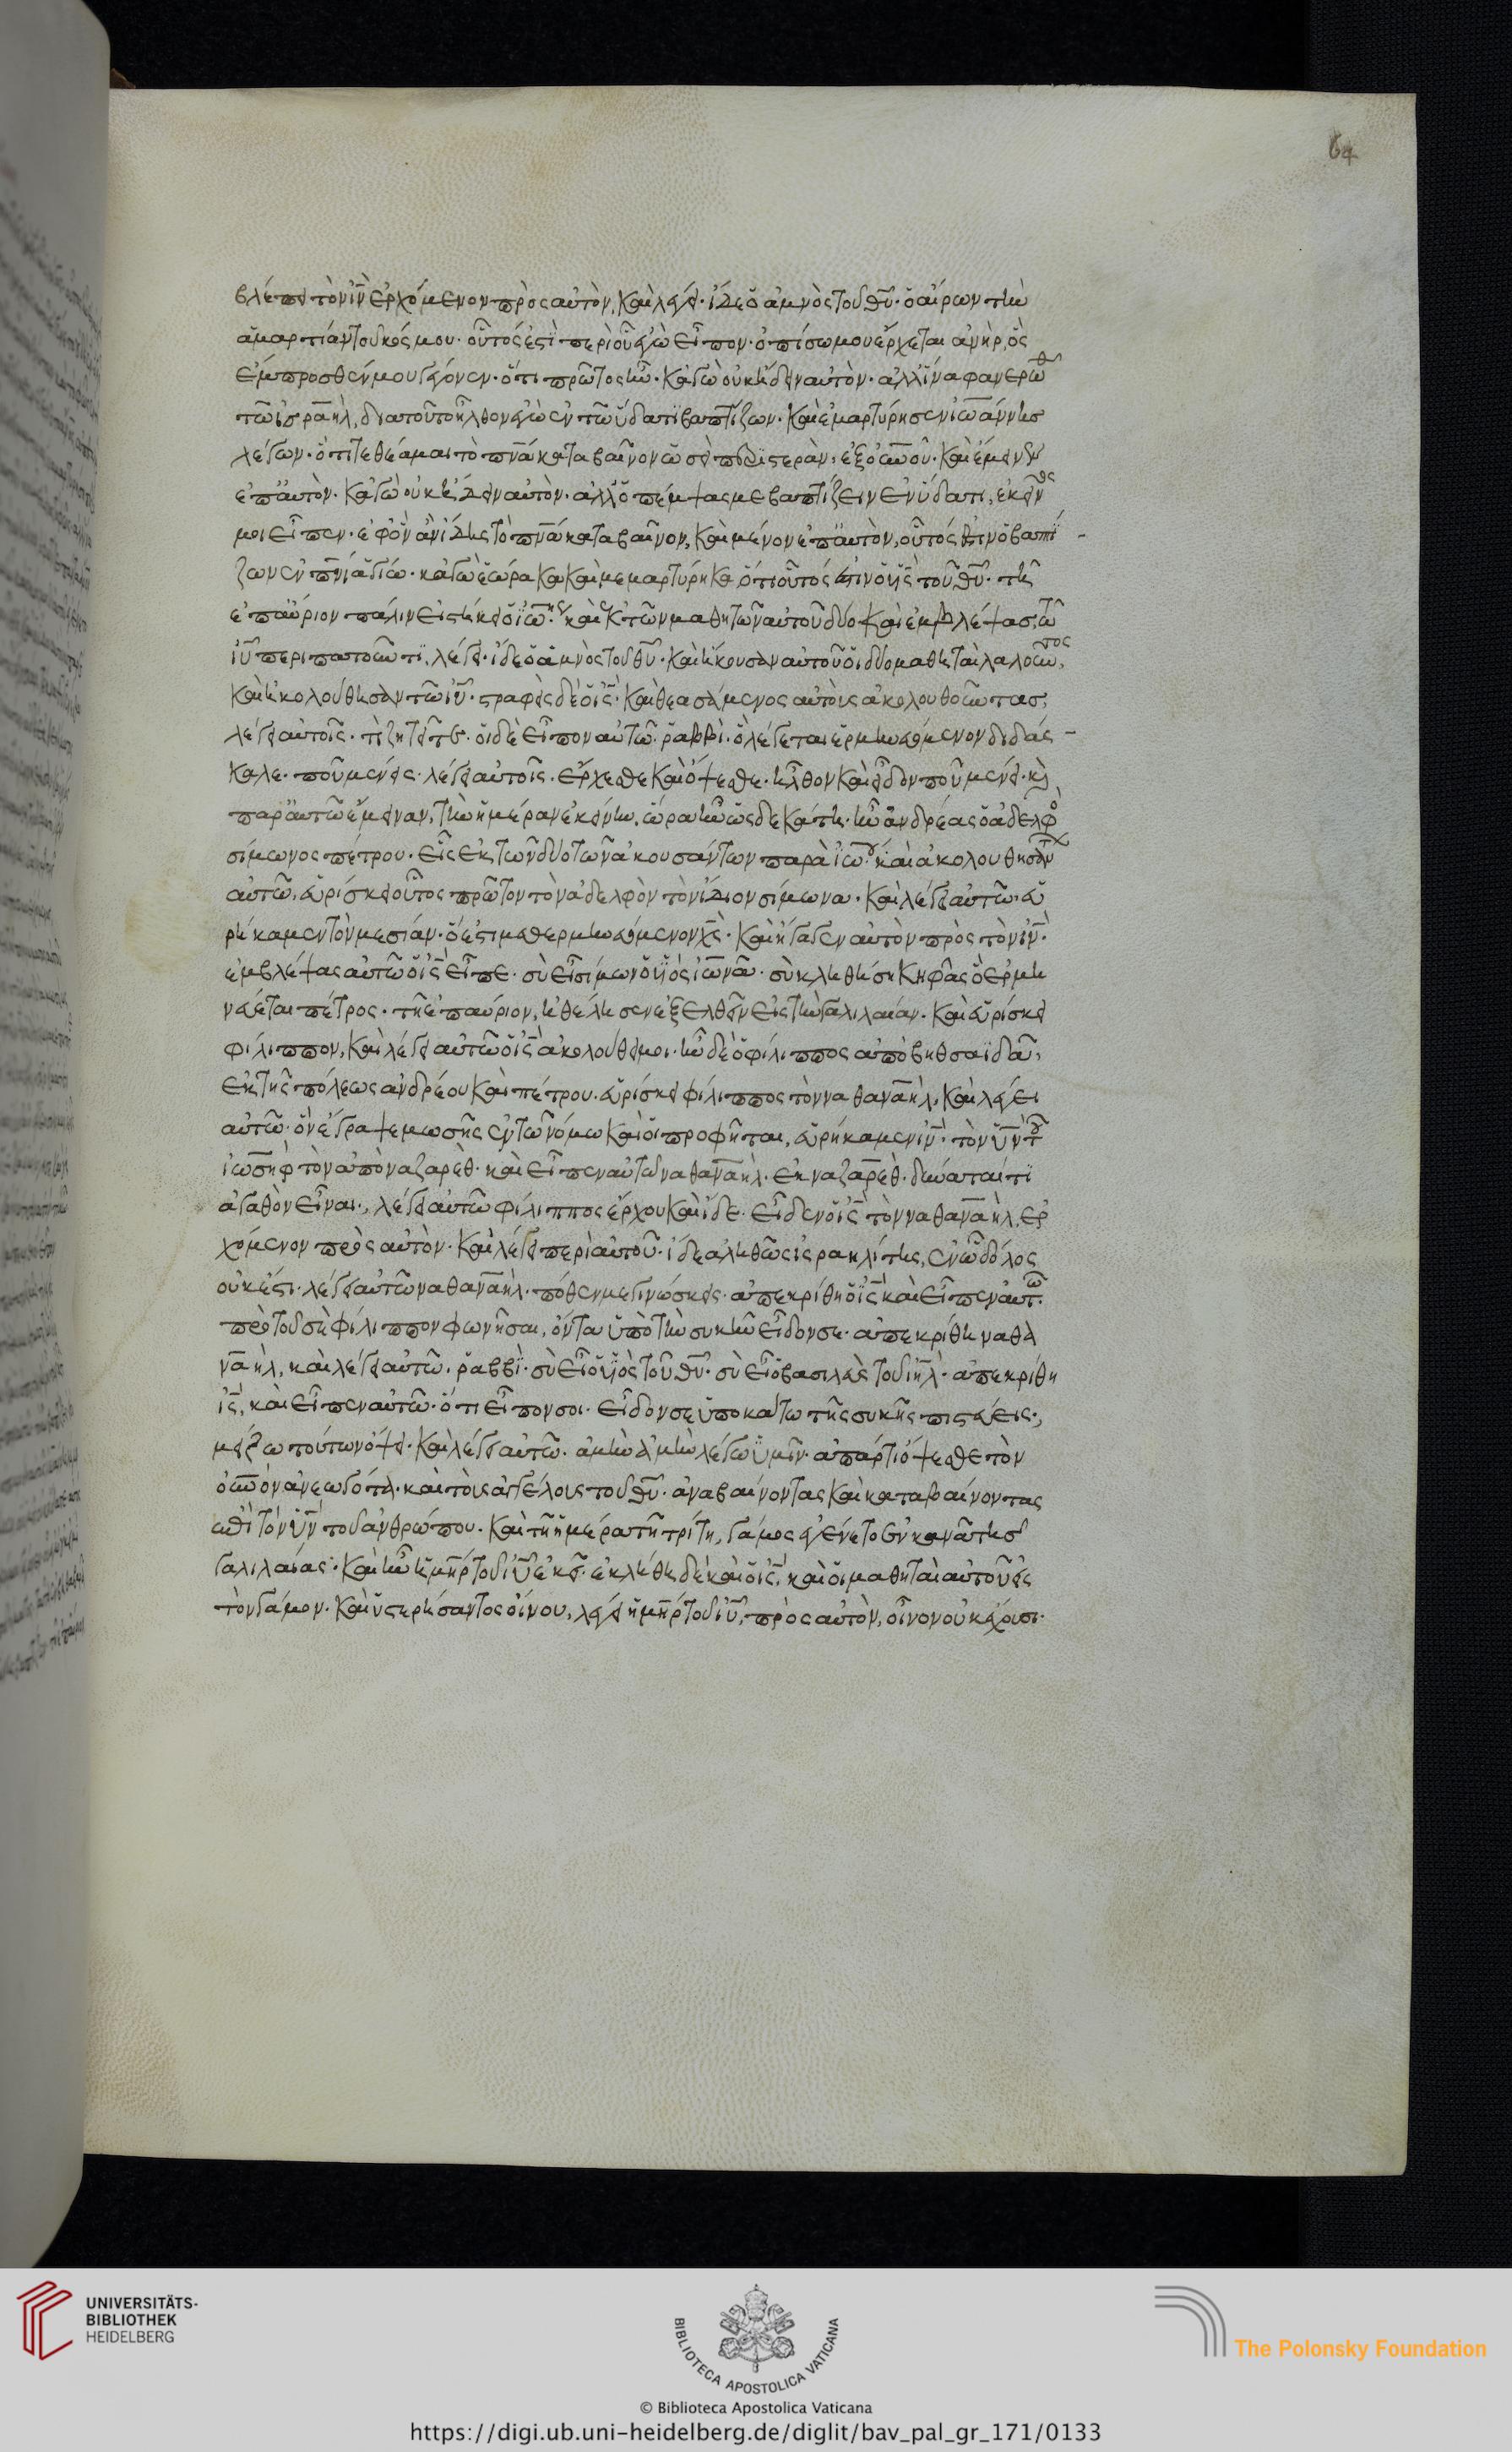 64
βλέπει τὸν ἰν̅ ἐρχόμενον πρὸς αὐτὸν, καὶ λέγει· ἴδε ὁ ἀμνὸς τοῦ θυ̅· ὁ αἴρων τὴν
ἁμαρτίαν τοῦ κόσμου· οὗτός ἐστι περὶ οὗ ἐγὼ εἶπον· ὀπίσω μου ἔρχεται ἀνὴρ, ὃς
ἔμπροσθέν μου γέγονεν· ὅτι πρῶτος μου ἦν· κἀγὼ οὐκ ἤδειν αὐτὸν· ἀλλ' ἵνα φανερωθῆ
τῶ ἰσραηλ, διατοῦτο ἦλθον ἐγὼ ἐν τῶ ὕδατι βαπτίζων· καὶ ἐμαρτύρησεν ἰωάννης
λέγων· ὅτι τεθέαμαι τὸ πνα̅ καταβαῖνον ὡσεὶ περιστερὰν, ἐξ οὐνου̅· καὶ ἔμεινεν
ἐπ' αὐτὸν· κἀγὼ οὐκ ἤδειν αὐτὸν· ἀλλ' ὁ πέμψας με βαπτίζειν ἐν ὕδατι, ἐκεῖνός
μοι εἶπεν· ἐφ' ὃν ἂν ἴδης τὸ πνα̅ καταβαῖνον, καὶ μένον ἐπ' αὐτὸν, οὗτός ἐστιν ὁ βαπτί-
ζων ἐν πνι̅ ἁγίω· κἀγὼ ἑώρακα καὶ μεμαρτύρηκα ὅτι οὗτός ἐστιν ὁ υἱς̅ τοῦ θυ̅· τῆ
ἐπαύριον πάλιν εἱστήκει ὁ ἰωης καὶ ἐκ τῶν μαθητῶν αὐτοῦ δύο καὶ ἐμβλέψας τῶ
ἰυ̅ περιπατοῦντι, λέγει· ἴδε ὁ ἀμνὸς τοῦ θυ̅· καὶ ἤκουσαν αὐτοῦ οἱ δύο μαθηταὶ λαλοῦντος,
καὶ ἠκολούθησαν τῶ ἰυ̅· στραφεὶς δὲ ὁ ις̅· καὶ θεασάμενος αὐτοὺς ἀκολουθοῦντας,
λέγει αὐτοῖς· τί ζητεῖτε· οἱ δὲ εἶπον αὐτῶ· ῥαββὶ· ὃ λέγεται ἑρμηνευόμενον διδάσ-
καλε· ποῦ μένεις· λέγει αὐτοῖς· ἔρχεσθε καὶ ὄψεσθε· ἦλθον καὶ εἶδον ποῦ μένει· κ̀
παρ' αὐτῶ ἔμειναν, τὴν ἡμέραν ἐκείνην, ὥρα ἦν ὡς δεκάτη· ἦν ἀνδρέας ὁ ἀδελφὸς
σίμωνος πέτρου· εἷς ἐκ τῶν δύο τῶν ἀκουσάντων παρὰ ἰωου καὶ ἀκολουθησάντων
αὐτῶ, εὑρίσκει οὗτος πρῶτον τὸν ἀδελφὸν τὸν ἴδιον σίμωνα· καὶ λέγει αὐτῶ· εὑ
ρήκαμεν τὸν μεσίαν· ὅ ἐστι μεθερμηνευόμενον χς̅· καὶ ἤγαγεν αὐτὸν πρὸς τὸν ἰν̅·
ἐμβλέψας αὐτῶ ὁ ις̅ εἶπε· σὺ εἶ σίμων ὁ υἱὸς ἰωνᾶ· σὺ κληθήση κηφᾶς ὃ ἑρμη
νεύεται πέτρος· τῆ ἐπαύριον, ἠθέλησεν ἐξελθεῖν εἰς τὴν γαλιλαίαν· καὶ εὑρίσκει
φίλιππον, καὶ λέγει αὐτῶ ὁ ις̅ ἀκολούθει μοι· ἦν δὲ ὁ φίλιππος ἀπὸ βηθσαϊδὰ,
ἐκ τῆς πόλεως ἀνδρέου καὶ πέτρου· εὑρίσκει φίλιππος τὸν ναθαναηλ, καὶ λέγει
αὐτῶ· ὃν ἔγραψε μωσῆς ἐν τῶ νόμω καὶ οἱ προφῆται, εὑρήκαμεν ἰν̅· τὸν υν̅ τοῦ
ἰωσὴφ τὸν ἀπὸ ναζαρὲθ· καὶ εἶπεν αὐτῶ ναθαναηλ· ἐκ ναζαρὲθ· δύναταί τι
ἀγαθὸν εἶναι·, λέγει αὐτῶ φίλιππος ἔρχου καὶ ἴδε· εἶδεν ὁ ις̅ τὸν ναθαναηλ, ἐρ
χόμενον πρὸς αὐτὸν· καὶ λέγει περὶ αὐτοῦ· ἴδε ἀληθῶς ἰσραηλίτης, ἐν ᾧ δόλος
οὐκ ἔστι· λέγει αὐτῶ ναθαναηλ· πόθεν με γινώσκεις· ἀπεκρίθη ὁ ις̅ καὶ εἶπεν αὐτῶ·
πρὸ τοῦ σὲ φίλιππον φωνῆσαι, ὄντα ὑπὸ τὴν συκὴν εἶδόν σε· ἀπεκρίθη ναθα
ναηλ, καὶ λέγει αὐτῶ· ῥαββὶ· σὺ εἶ ὁ υἱὸς τοῦ θυ̅· σὺ εἶ ὁ βασιλεὺς τοῦ ιηλ̅· ἀπεκρίθη
ις̅, καὶ εἶπεν αὐτῶ· ὅτι εἶπόν σοι· εἶδόν σε ὑποκάτω τῆς συκῆς πιστεύεις·,
μείζω τούτων ὄψει· καὶ λέγει αὐτῶ· ἀμὴν ἀμὴν λέγω ὑμῖν· ἀπάρτι ὄψεσθε τὸν
οὐνον̅ ἀνεωγότα· καὶ τοὺς ἀγγέλους τοῦ θυ̅· ἀναβαίνοντας καὶ καταβαίνοντας
ἐπὶ τὸν υν̅ τοῦ ἀνθρώπου· καὶ τῆ ἡμέρα τῆ τρίτη, γάμος ἐγένετο ἐν κανᾶ τῆς
γαλιλαίας· καὶ ἦν ἡ μηρ̅ τοῦ ἰυ̅ ἐκεῖ· ἐκλήθη δὲ καὶ ὁ ις̅, καὶ οἱ μαθηταὶ αὐτοῦ εἰς
τὸν γάμον· καὶ ὑστερήσαντος οἴνου, λέγει ἡ μηρ̅ τοῦ ἰυ̅, πρὸς αὐτὸν, οἶνον οὐκ ἔχουσι·
UNIVERSITÄTS-
BIBLIOTHEK
HEIDELBERG
BIBLIOTECA APOSTOLICA VATICANA
The Polonsky Foundation
© Biblioteca Apostolica Vaticana
https://digi.ub.uni-heidelberg.de/diglit/bav_pal_gr_171/0133